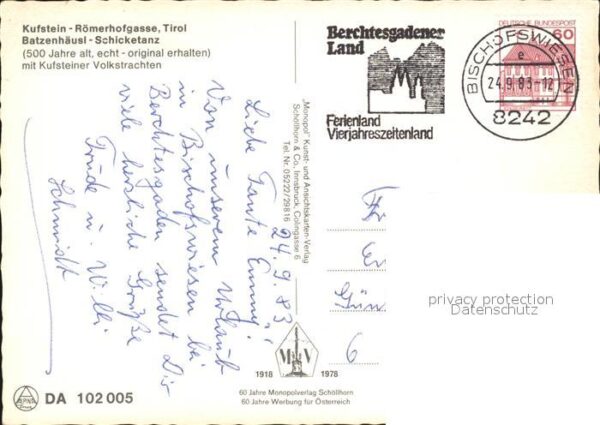 Kufstein - Römerhofgasse, Tirol
Batzenhäusl - Schicketanz
(500 Jahre alt, echt - original erhalten)
mit Kufsteiner Volkstrachten
Berchtesgadener
Land
Ferienland
Vierjahreszeitenland
DEUTSCHE BUNDESPOST
60
BISCHOFSWIESEN
e
24.9.83-12
8242
24.9.83
Liebe Tante Emmy!
Von unserem Urlaub
in Bischofswiesen bei
Berchtesgaden sendet Dir
viele herzliche Grüße
Trude u. Willi
Schmidt
"Monopol" Kunst- und Ansichtskarten-Verlag
Schöllhorn & Co., Innsbruck, Colingasse 6
Tel. Nr. 05222/29816
Gün
6
privacy protection
Datenschutz
MV
1918 1978
60 Jahre Monopolverlag Schöllhorn
60 Jahre Werbung für Österreich
DA 102 005